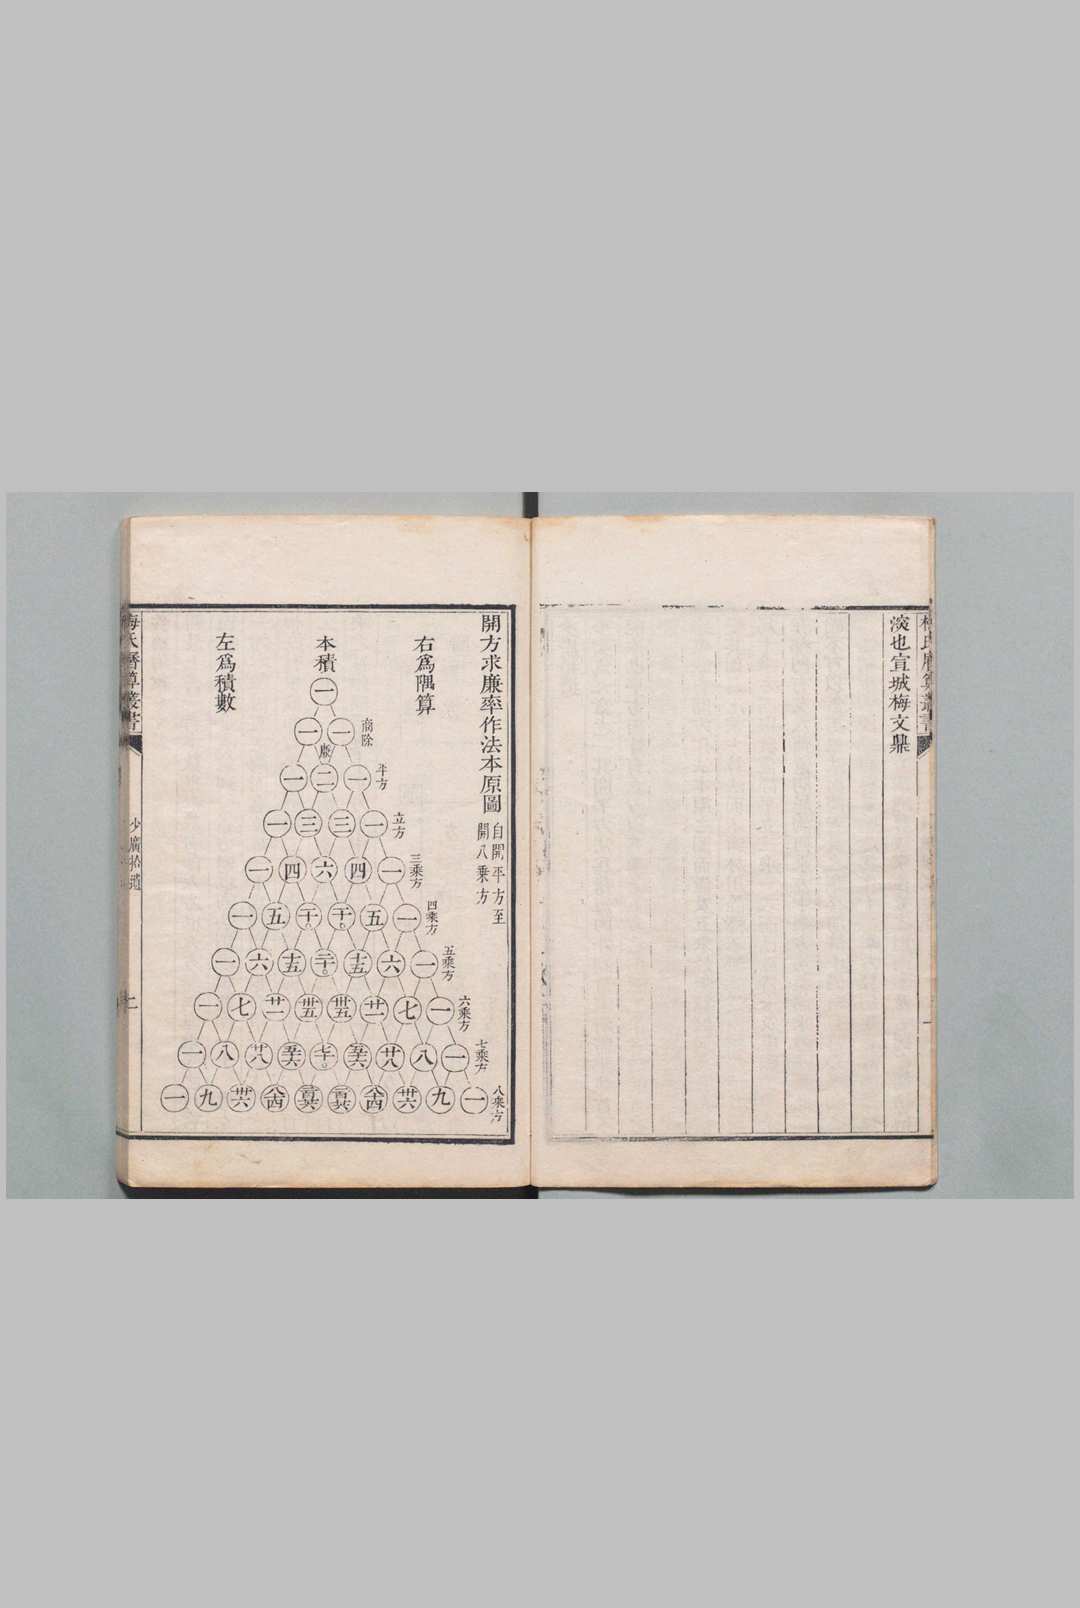 梅氏曆算叢書
淡也宣城梅文鼎
一
開方求廉率作法本原圖
自開平方至
開八乗方
右爲隅算
本積
左爲積數
一
一 一 商除
廉
一 二 一 平方
一 三 三 一 立方
一 四 六 四 一 三乗方
一 五 十〇 十〇 五 一 四乗方
一 六 十五 二十〇 十五 六 一 五乗方
一 七 廿一 卅五 卅五 廿一 七 一 六乗方
一 八 廿八 五六 七十〇 五六 廿八 八 一 七乗方
一 九 卅六 八四 一百二六 一百二六 八四 卅六 九 一 八乗方
梅氏曆算叢書
少廣拾遺
二